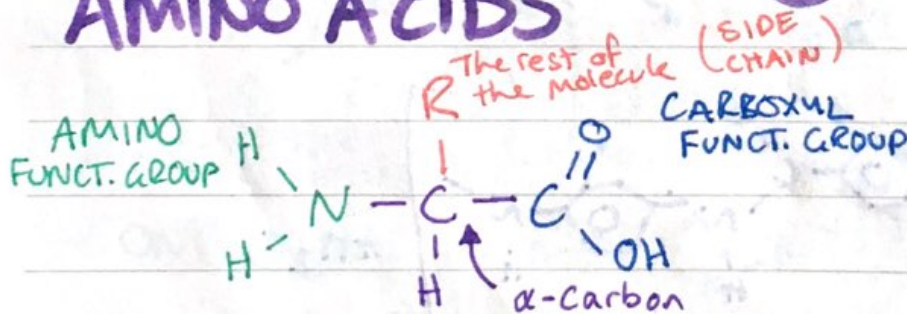 AMINO ACIDS
The rest of (SIDE
R the molecule CHAIN)
AMINO
FUNCT. GROUP
CARBOXYL
FUNCT. GROUP
H O
N — C — C
H H OH
α-carbon